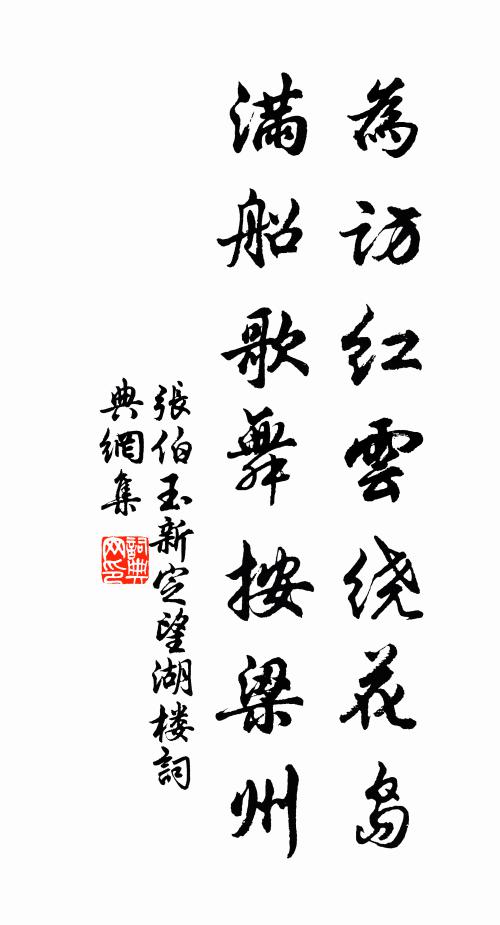 為访紅雲绕花岛
滿船歌舞按梁州
張伯玉新定望湖楼詞
典網集
詞典网印